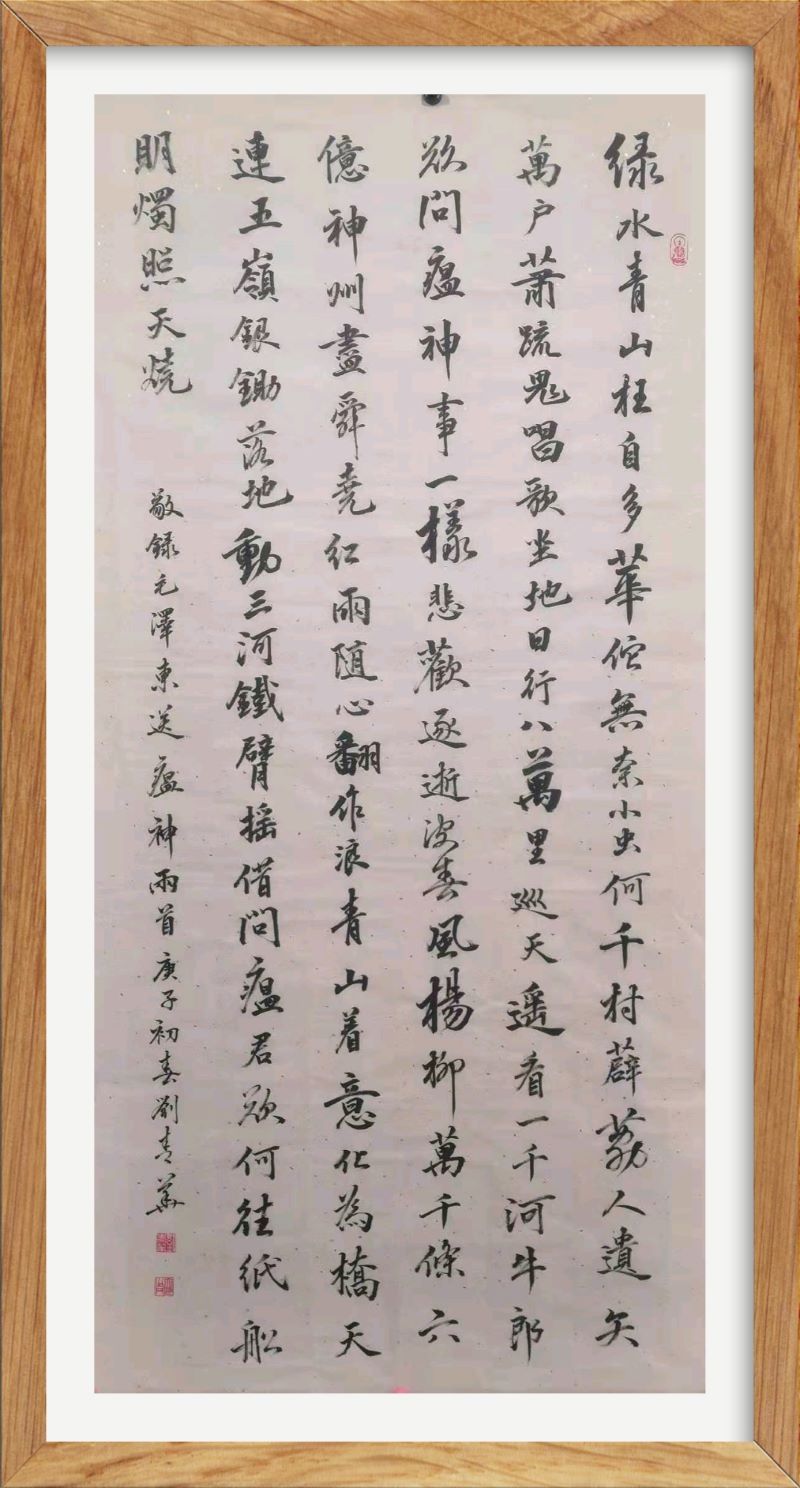 绿水青山枉自多華佗無奈小虫何千村薜荔人遺矢
萬户萧疏鬼唱歌坐地日行八萬里巡天遥看一千河牛郎
欲問瘟神事一樣悲歡逐逝波春風楊柳萬千條六
億神州盡舜堯红雨随心翻作浪青山着意化為橋天
連五嶺銀鋤落地動三河鐵臂摇借問瘟君欲何往紙船
明燭照天燒
敬録毛澤東送瘟神兩首庚子初春劉青華